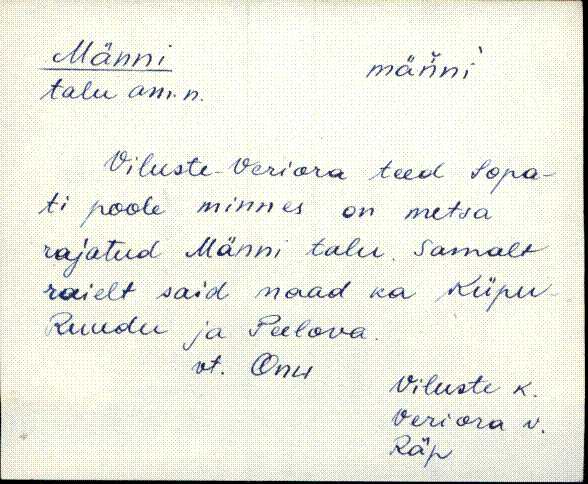 Männi männi
talu am.n.
Viluste-Veriora teed Sopa-
ti poole minnes on metsa
rajatud Männi talu. Samalt
raielt said maad ka Küpu
Ruudu ja Peelova.
vt. Onu
Viluste k.
Veriora v.
Räp